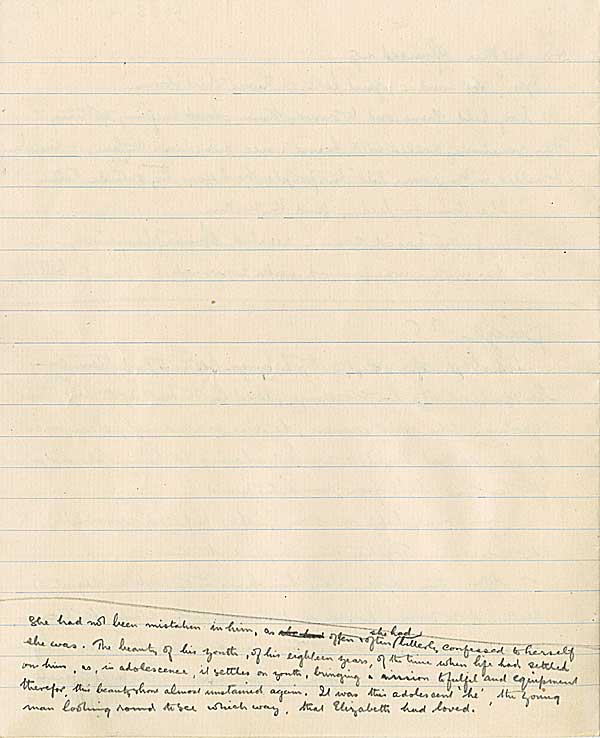 She had not been mistaken in him, as she had often & often she had bitterly confessed to herself
she was. The beauty of his youth, of his eighteen years, of the time when life had settled
on him, as, in adolescence, it settles on youth, bringing a mission to fulfil and equipment
therefor, this beauty shone almost unstained again. It was this adolescent 'he', the young
man looking round to see which way, that Elizabeth had loved.